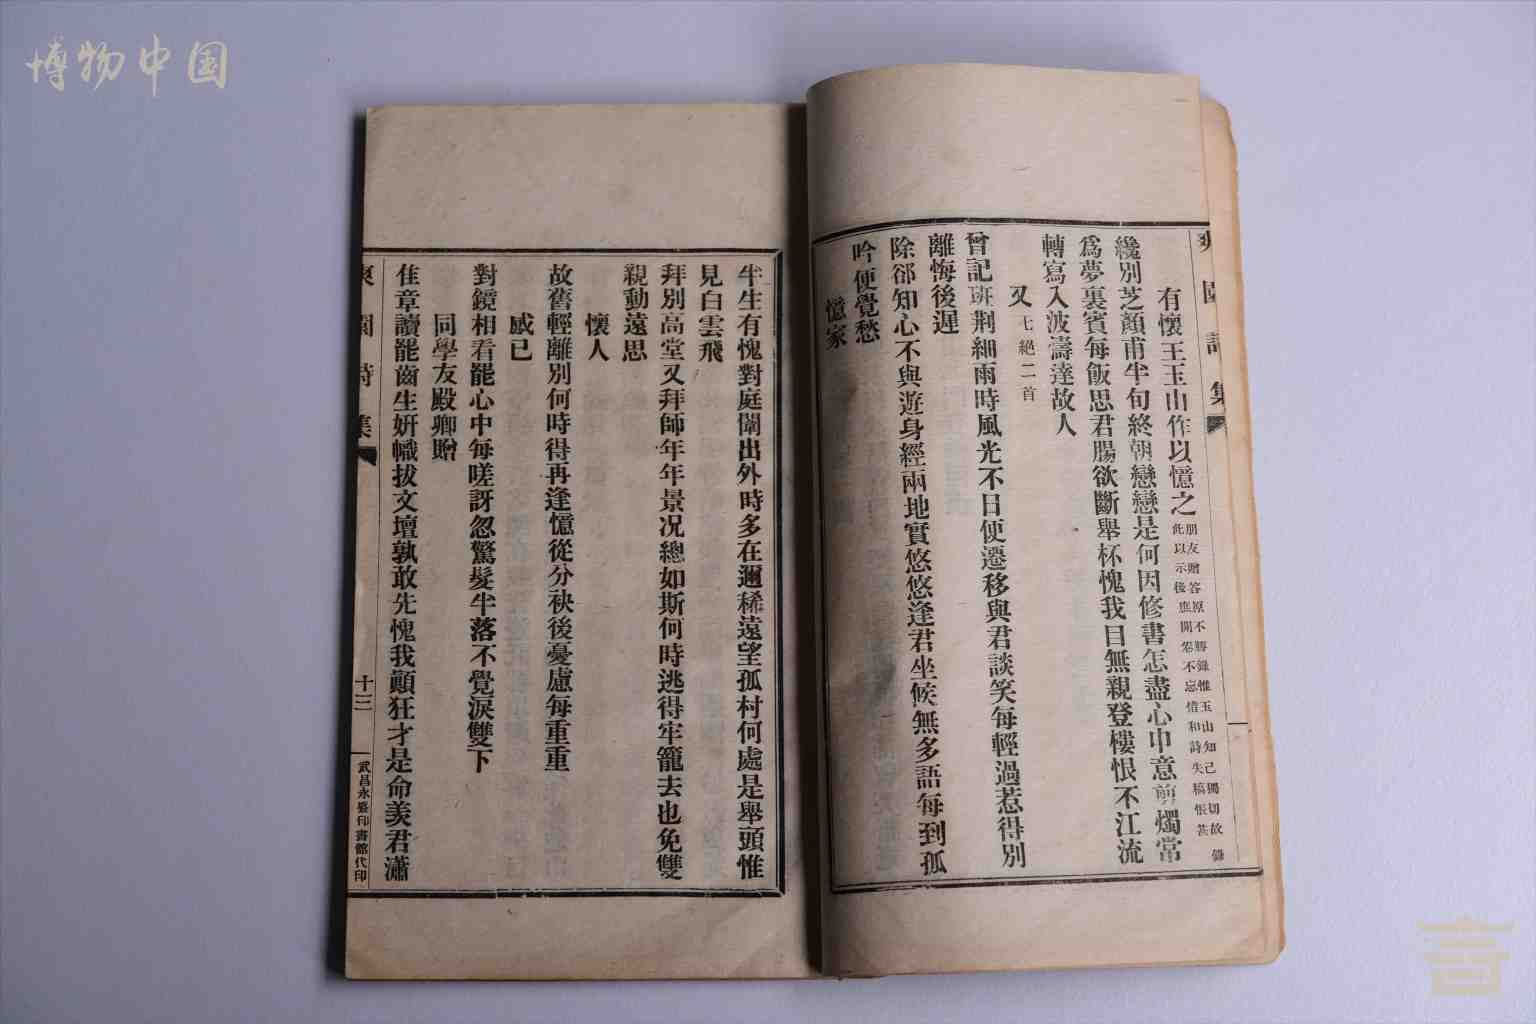 博物中国
爽園詩集
有懷王玉山作以憶之
朋友贈答原不勝錄惟玉山知己獨切故錄
此以示後庶開卷不忘惜和詩失稿悵甚
纔別芝顏甫半旬終朝戀戀是何因修書怎盡心中意剪燭常
爲夢裏賓每飯思君腸欲斷舉杯愧我目無親登樓恨不江流
轉寫入波濤達故人
又七絕二首
曾記班荆細雨時風光不日便遷移與君談笑每輕過惹得別
離悔後遲
除郤知心不與遊身經兩地實悠悠逢君坐候無多語每到孤
吟便覺愁
憶家
半生有愧對庭闈出外時多在邇稀遠望孤村何處是舉頭惟
見白雲飛
拜別高堂又拜師年年景况總如斯何時逃得牢籠去也免雙
親動遠思
懷人
故舊輕離別何時得再逢憶從分袂後憂慮每重重
感已
對鏡相看罷心中每嗟訝忽驚髮半落不覺淚雙下
同學友殿卿贈
佳章讀罷齒生妍幟拔文壇孰敢先愧我顛狂才是命羨君瀟
爽園詩集
十三
武昌永盛印書館代印